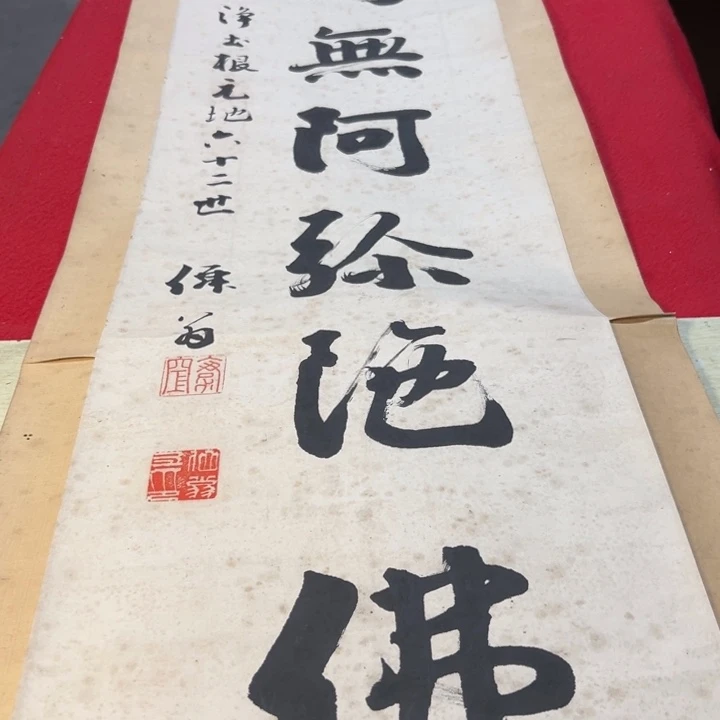 無阿弥陀佛
浄土根元地六十二世
翁